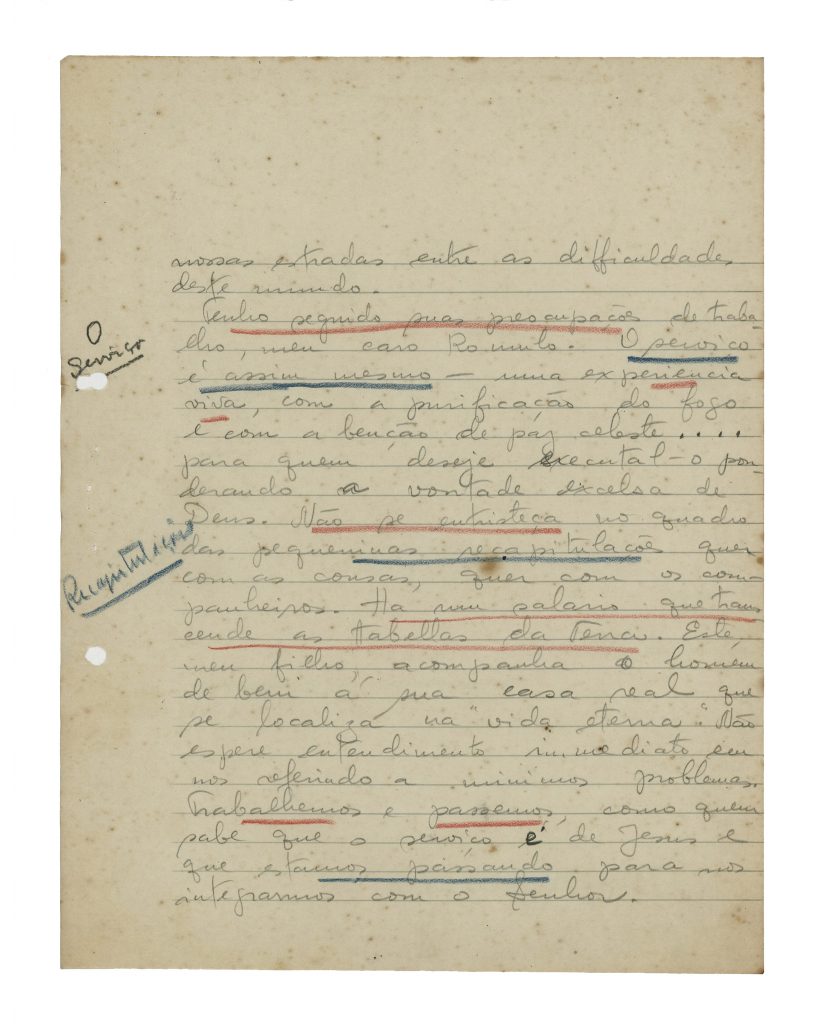 nossas estradas entre as difficuldades
deste mundo.
Tenho seguido suas preocupações de traba-
lho, meu caro Romulo. O serviço
O
serviço
é assim mesmo — uma experiencia
viva, com a purificação do fogo
e com a benção de páz celeste....
para quem deseje executal-o pon-
derando a vontade excelsa de
Deus. Não se entristeça no quadro
das pequeninas recapitulações quer
Recapitulação
com as cousas, quer com os com-
panheiros. Ha um salario que trans
cende as tabellas da Terra. Este,
meu filho, acompanha o homem
de bem á sua casa real que
se localiza na "vida eterna". Não
espere entendimento immediato em
nos referindo a minimos problemas.
Trabalhemos e passemos, como quem
sabe que o serviço é de Jesus e
que estamos passando para nos
integrarmos com o Senhor.